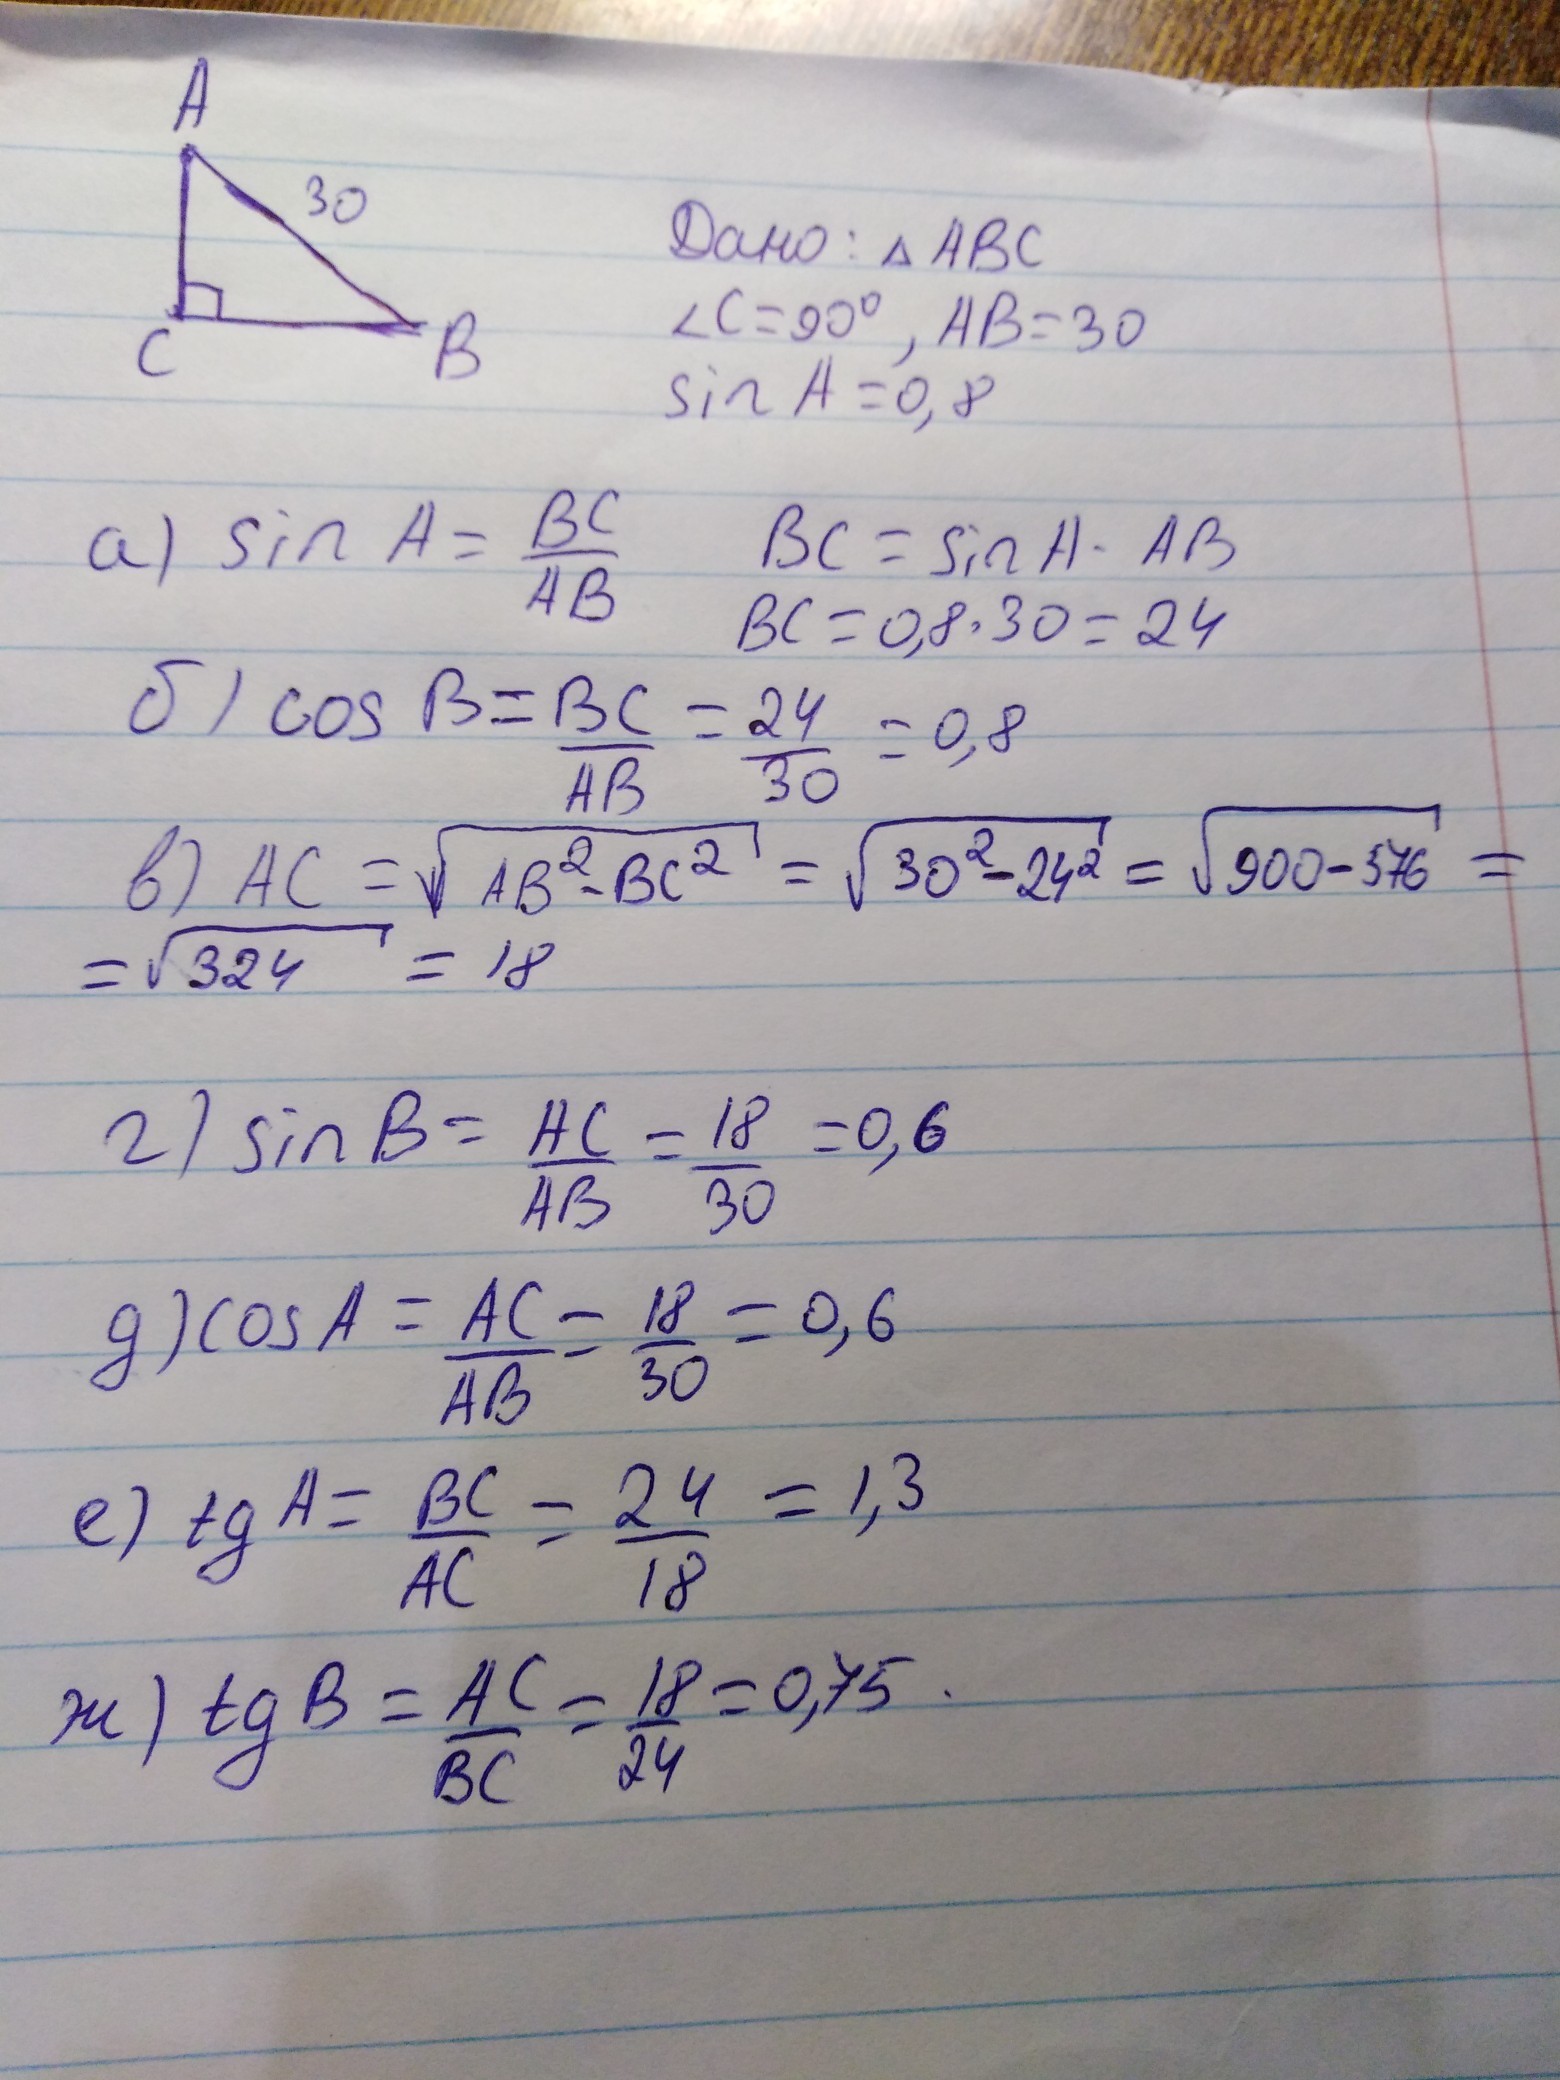 A
30
C B
Дано: △ ABC
∠C=90°, AB=30
sin A =0,8
а) sin A = BC/AB BC = sin A · AB
BC = 0,8·30 = 24
б) cos B = BC/AB = 24/30 = 0,8
в) AC = √AB²-BC² = √30²-24² = √900-576 =
= √324 = 18
г) sin B = AC/AB = 18/30 = 0,6
д) cos A = AC/AB = 18/30 = 0,6
е) tg A = BC/AC = 24/18 = 1,3
ж) tg B = AC/BC = 18/24 = 0,75.